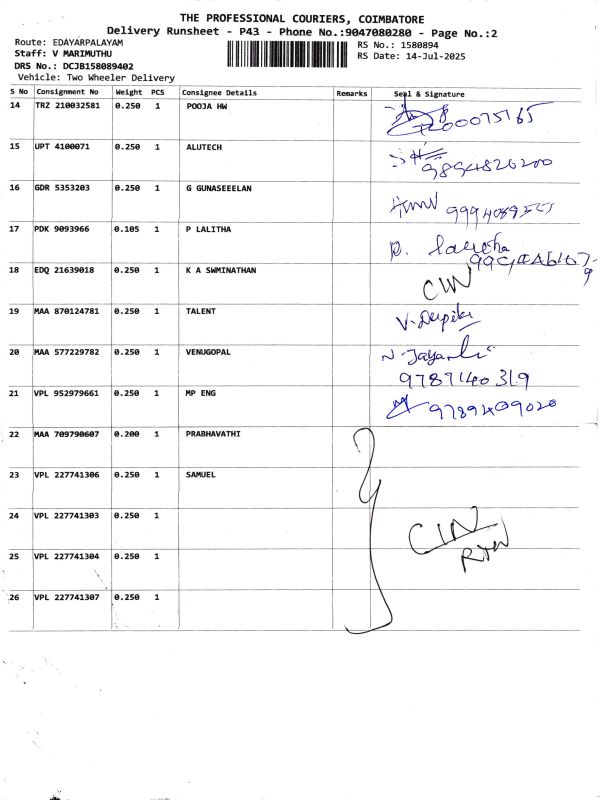 THE PROFESSIONAL COURIERS, COIMBATORE
Delivery Runsheet - P43 - Phone No.:9047080280 - Page No.:2
Route: EDAYARPALAYAM
Staff: V MARIMUTHU
DRS No.: DCJB158089402
Vehicle: Two Wheeler Delivery
RS No.: 1580894
RS Date: 14-Jul-2025
S No Consignment No Weight PCS Consignee Details Remarks Seal & Signature
14 TRZ 210032581 0.250 1 POOJA HW
15 UPT 4100071 0.250 1 ALUTECH 9894820200
16 GDR 5353203 0.250 1 G GUNASEEELAN
17 PDK 9093966 0.105 1 P LALITHA
18 EDQ 21639018 0.250 1 K A SWMINATHAN CIN
19 MAA 870124781 0.250 1 TALENT V. Deepika
20 MAA 577229782 0.250 1 VENUGOPAL
9787140319
21 VPL 952979661 0.250 1 MP ENG 9789409020
22 MAA 709790607 0.200 1 PRABHAVATHI
23 VPL 227741306 0.250 1 SAMUEL
24 VPL 227741303 0.250 1 CIN
25 VPL 227741304 0.250 1
26 VPL 227741307 0.250 1